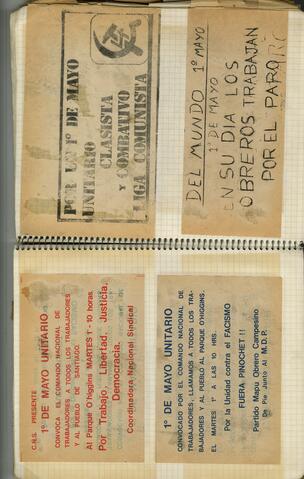 C.N.S. PRESENTE
1º DE MAYO UNITARIO
CONVOCA EL COMANDO NACIONAL DE
TRABAJADORES A TODOS LOS TRABAJADORES
Y AL PUEBLO DE SANTIAGO.
Al Parque O'higgins MARTES 1 - 10 horas
Por Trabajo, Libertad, Justicia,
Democracia.
Coordinadora Nacional Sindical
POR UN 1º DE MAYO
UNITARIO
CLASISTA
Y COMBATIVO
LIGA COMUNISTA
1º DE MAYO UNITARIO
CONVOCADO POR EL COMANDO NACIONAL DE
TRABAJADORES, LLAMAMOS A TODOS LOS TRA-
BAJADORES Y AL PUEBLO AL PARQUE O'HIGGINS.
EL MARTES 1º A LAS 10 HRS.
Por la Unidad contra el FACISMO
FUERA PINOCHET !!
Partido Mapu Obrero Campesino
De Pie Junto Al M.D.P.
DEL MUNDO 1º MAYO
1º DE MAYO
EN SU DIA LOS
OBREROS TRABAJAN
POR EL